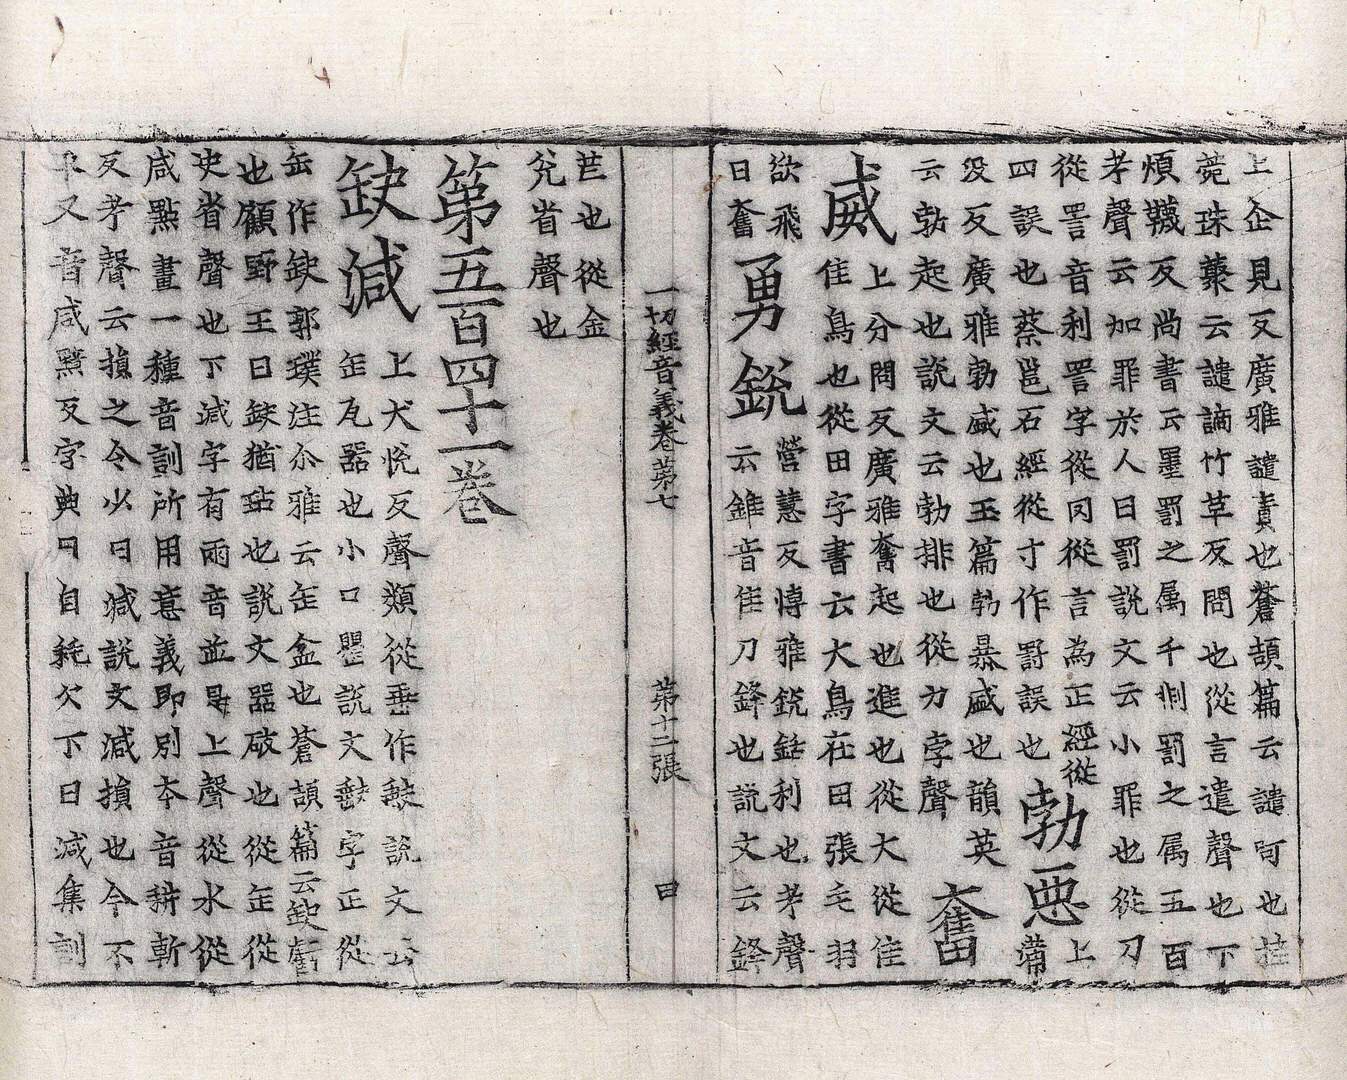 上企見反廣雅譴責也蒼頡篇云譴呵也
菀珠藂云譴謫竹草反問也從言遣聲也下
煩韈反尚書云墨罰之属千剕罰之属五百
孝聲云加罪於人曰罰說文云小罪也從刀
從詈音利詈字從冈從言為正經從
四誤也蔡邕石經從寸作罸誤也
勃惡
上蒲
没反廣雅勃盛也玉篇勃暴盛也韻英
云勃起也說文云勃排也從力孛聲
奮
威
上分問反廣雅奮起也進也從大從隹
隹鳥也從田字書云大鳥在田張毛羽
欲飛
曰奮
勇銳
營慧反博雅銳銛利也孝聲
云錐音隹刀鋒也説文云鋒
一切經音義卷第七 第十二張 曰
芒也從金
兊省聲也
第五百四十一卷
缺減
上犬恱反聲類從垂作𡙇說文云
缶瓦器也小口甖說文𡙇字正從
缶作缺郭璞注尒雅云缶盆也蒼頡篇云缺虧
也顧野王曰缺猶玷也說文器破也從缶從
史省聲也下減字有兩音並是上聲從水從
咸點畫一種音訓所用意義即別本音耕斬
反孝聲云損之令少曰減說文減損也今不
平又音咸黯反字典曰自耗欠下曰減集訓